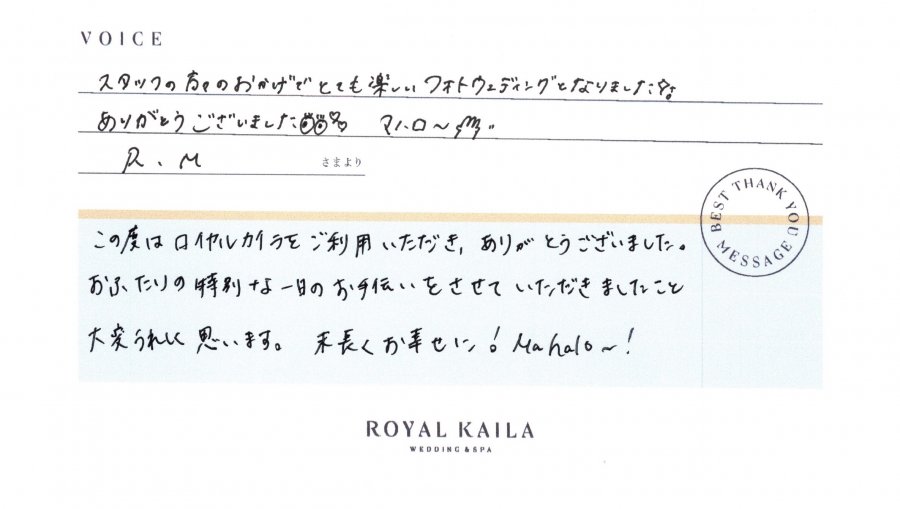 VOICE
スタッフの方々のおかげでとても楽しいフォトウェディングとなりました。
ありがとうございました マハロ〜
R.M さまより
BEST THANK YOU MESSAGE
この度はロイヤルカイラをご利用いただき,ありがとうございました。
おふたりの特別な一日のお手伝いをさせていただきましたこと
大変うれしく思います。 末長くお幸せに!Mahalo~!
ROYAL KAILA
WEDDING & SPA